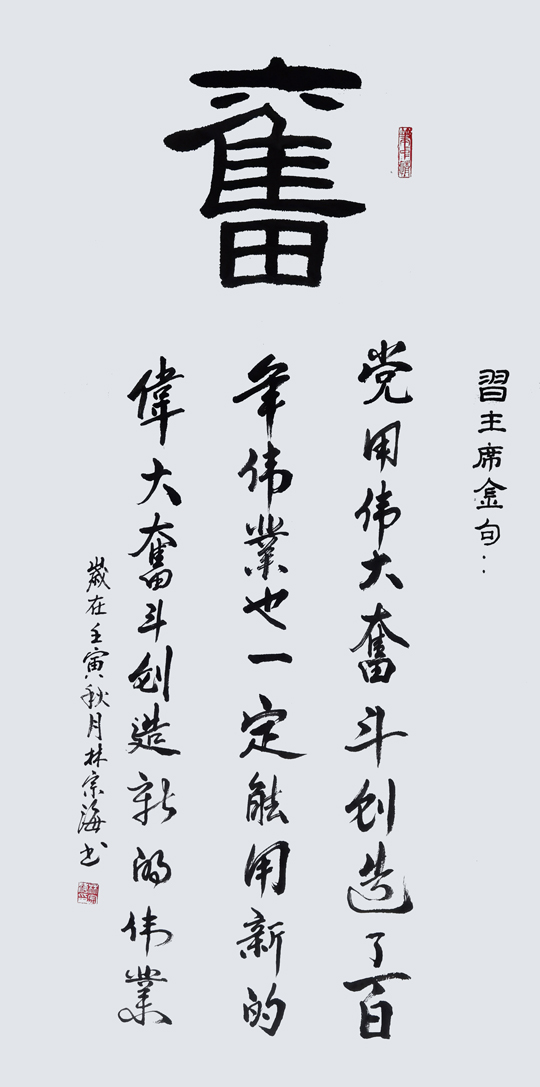 奮
習主席金句：
党用伟大奮斗创造了百
年伟業也一定能用新的
偉大奮斗创造新的伟業
歲在壬寅秋月林宗海书